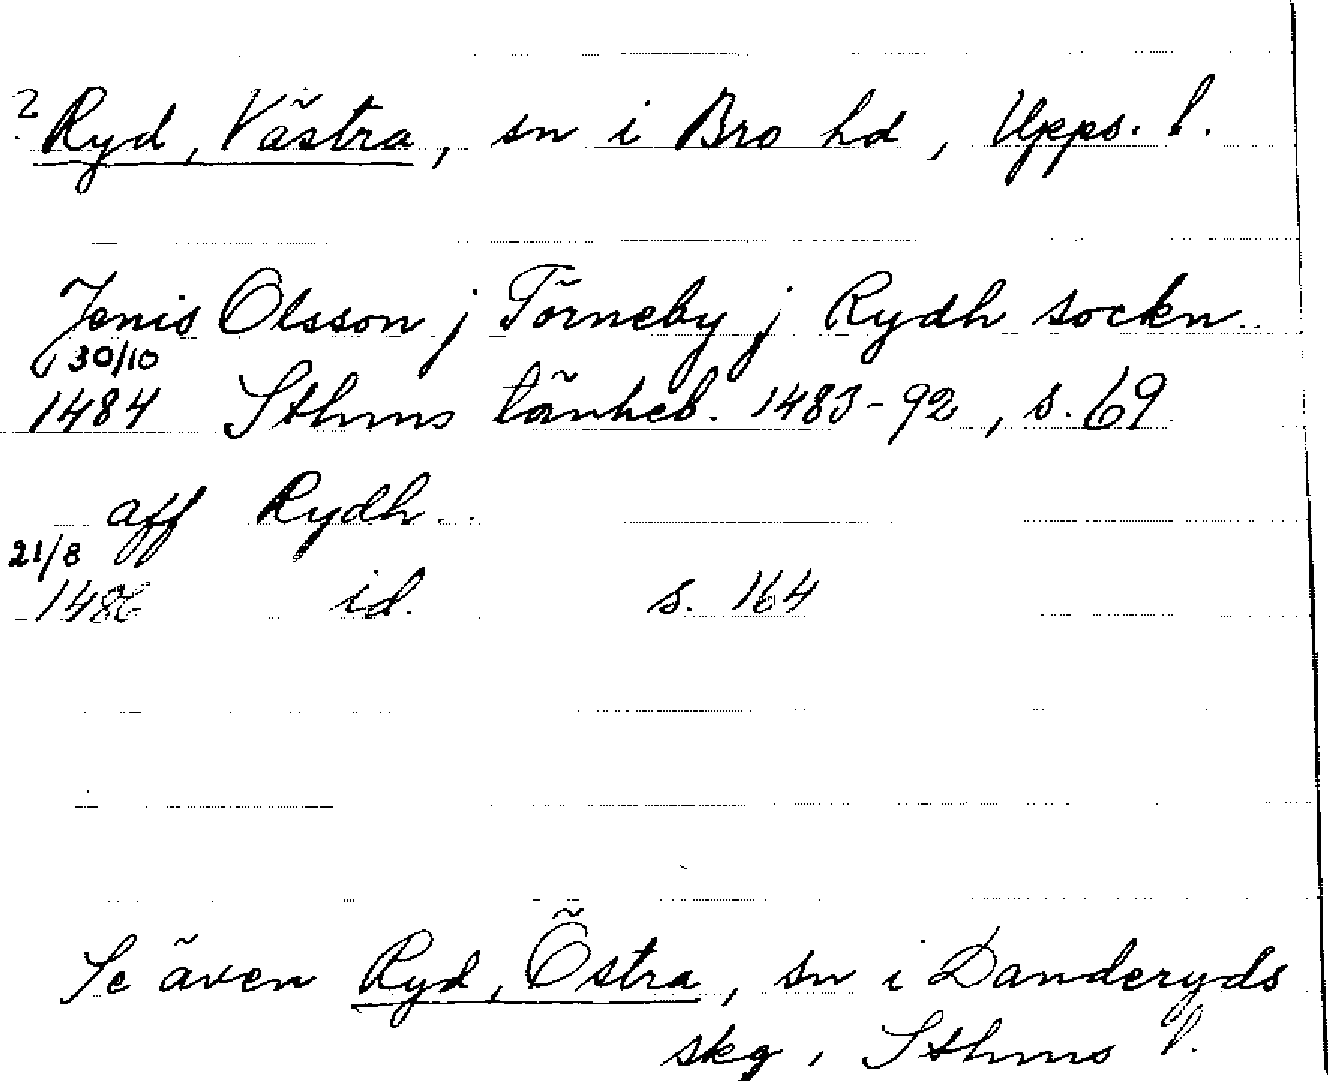 ? Ryd, Västra, sn i Bro hd, Upps. l.
Jenis Olsson j Törneby j Rydh sockn
30/10
1484 Sthms tänkeb. 1483-92, s. 69
aff Rydh
21/8
1486 id. s. 164
Se även Ryd, Östra, sn i Danderyds
skg, Sthms l.